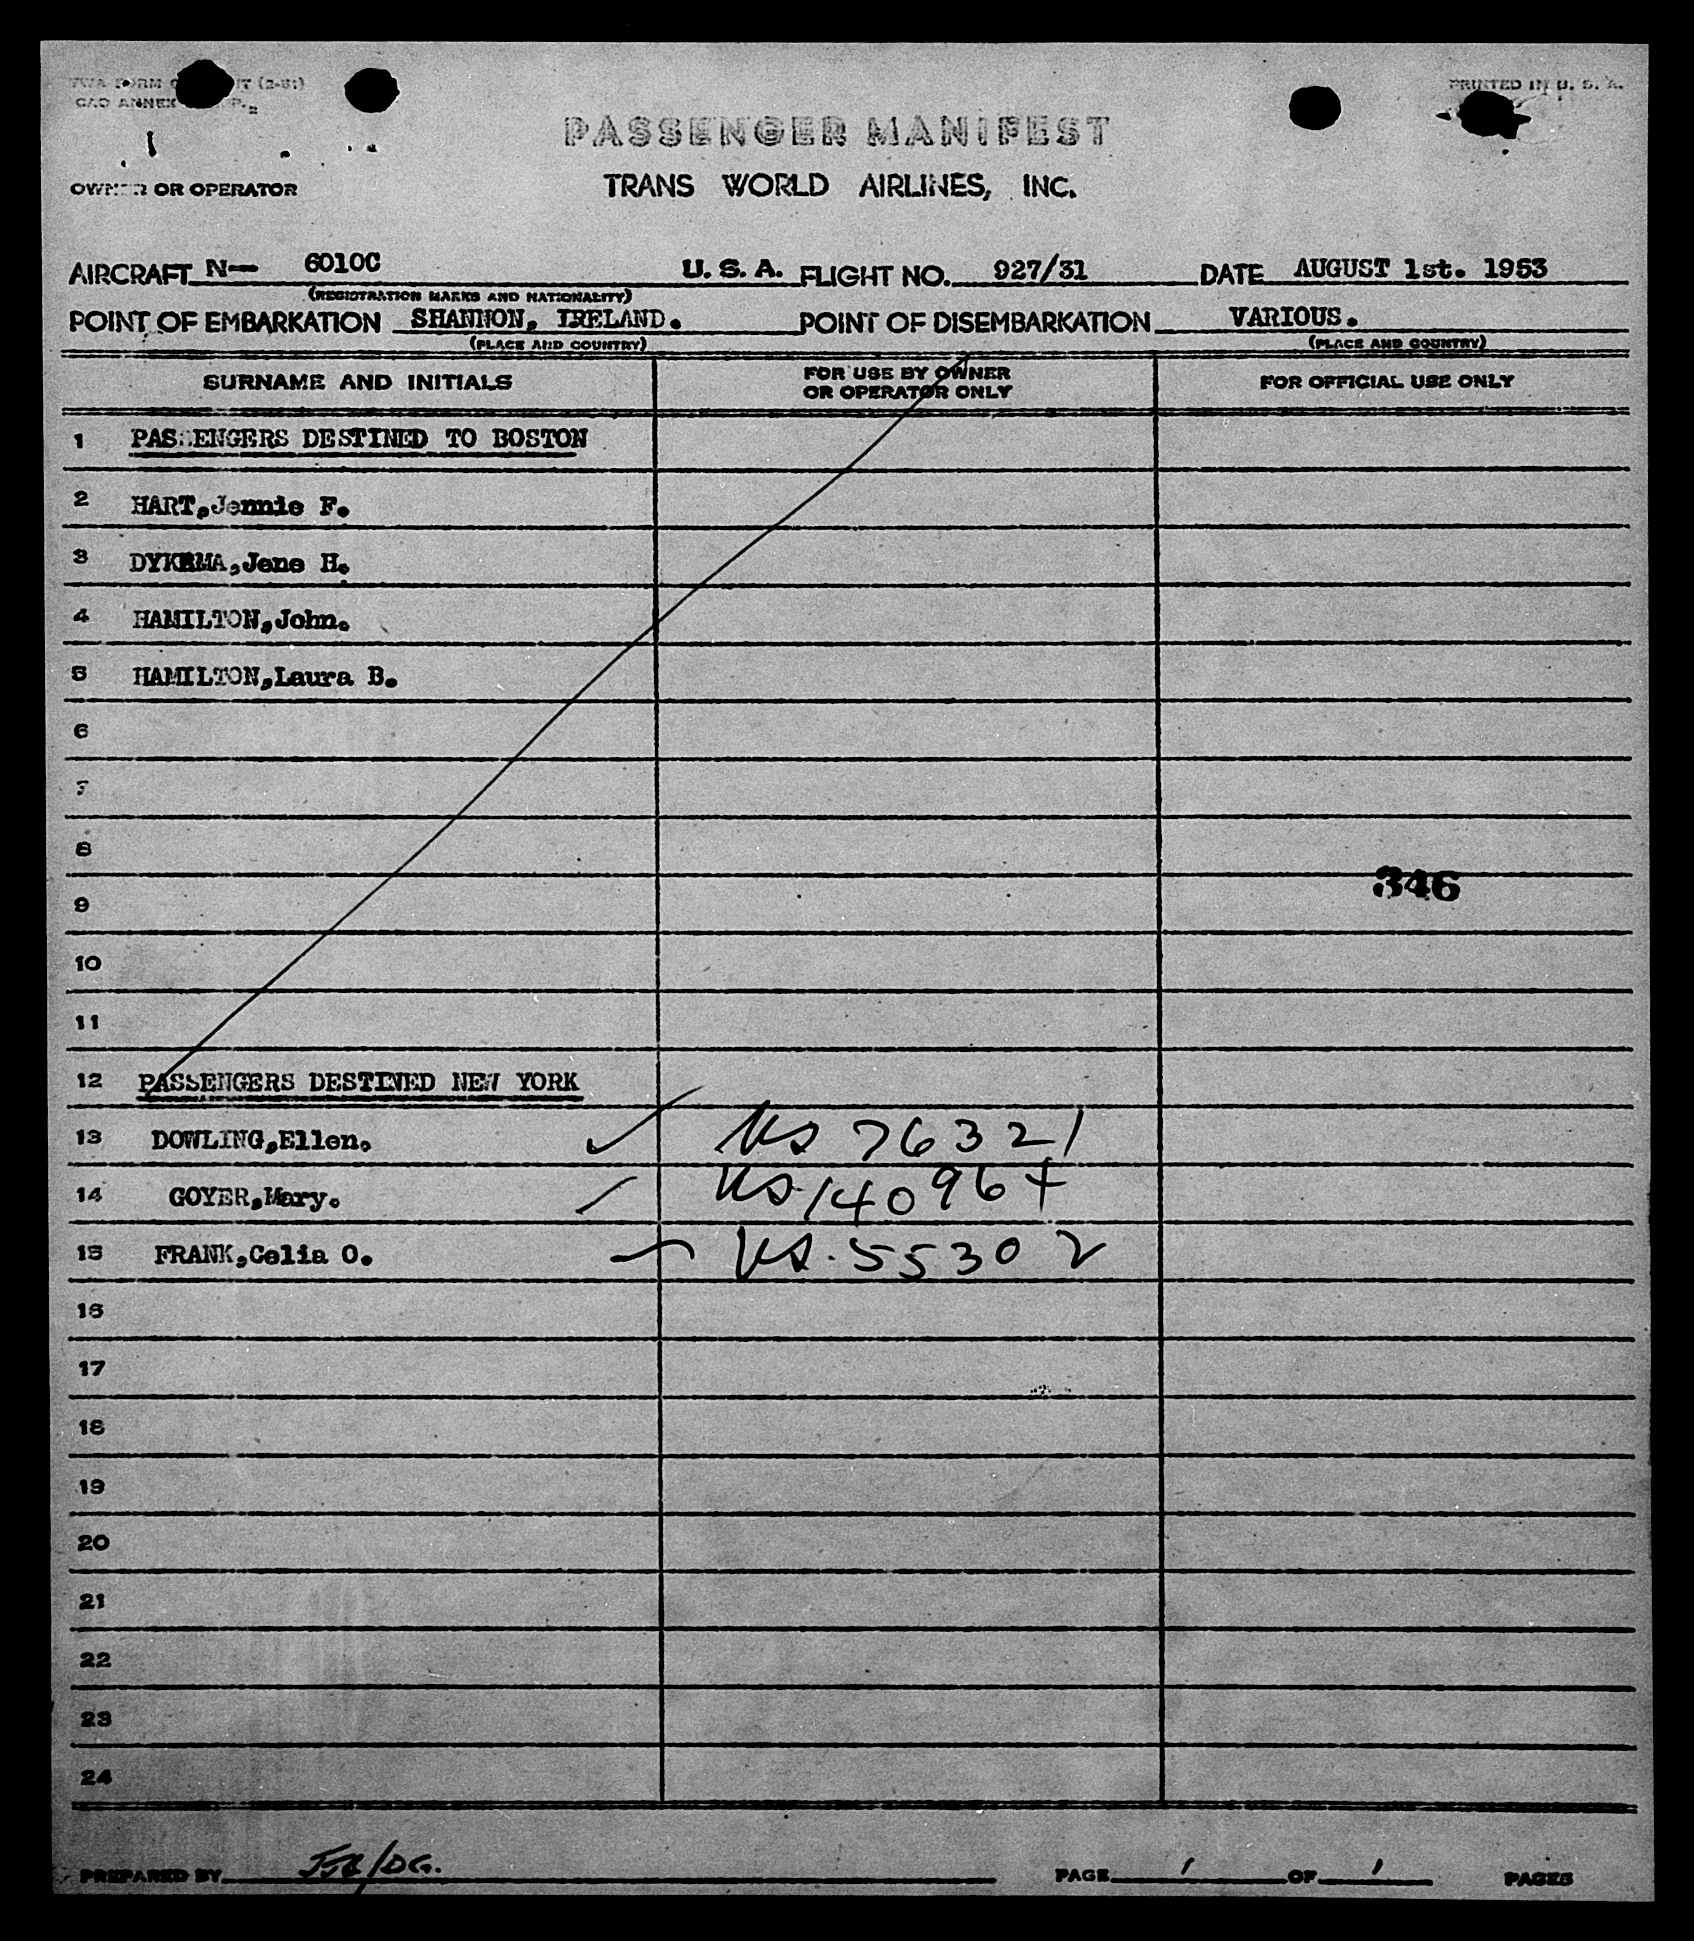 PRINTED IN U. S. A.
PASSENGER MANIFEST
OWNER OR OPERATOR TRANS WORLD AIRLINES, INC.
AIRCRAFT N- 6010C U. S. A. FLIGHT NO. 927/31 DATE AUGUST 1st. 1953
(REGISTRATION MARKS AND NATIONALITY)
POINT OF EMBARKATION SHANNON, IRELAND. POINT OF DISEMBARKATION VARIOUS.
(PLACE AND COUNTRY) (PLACE AND COUNTRY)
SURNAME AND INITIALS FOR USE BY OWNER OR OPERATOR ONLY FOR OFFICIAL USE ONLY
1 PASSENGERS DESTINED TO BOSTON
2 HART,Jennie F.
3 DYKEMA,Jene H.
4 HAMILTON,John.
5 HAMILTON,Laura B.
6
7
8
346
9
10
11
12 PASSENGERS DESTINED NEW YORK
13 DOWLING,Ellen. KS 76321
14 GOYER,Mary. KS-140964
15 FRANK,Celia O. KS-55302
16
17
18
19
20
21
22
23
24
PREPARED BY PAGE 1 OF 1 PAGES